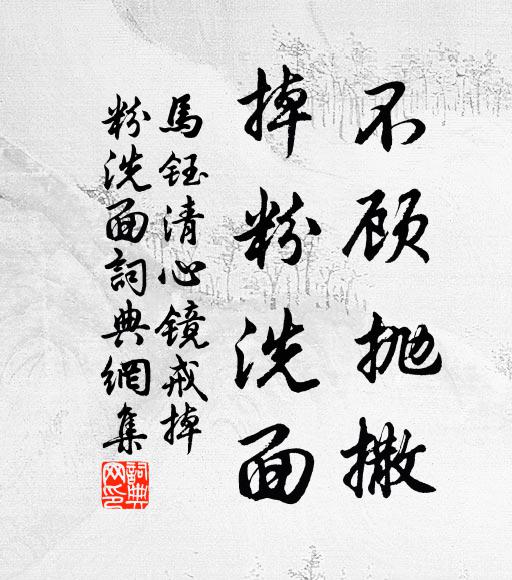 不顾抛撒
掉粉洗面
馬钰清心镜戒掉
粉洗面詞典網集
詞典
网印